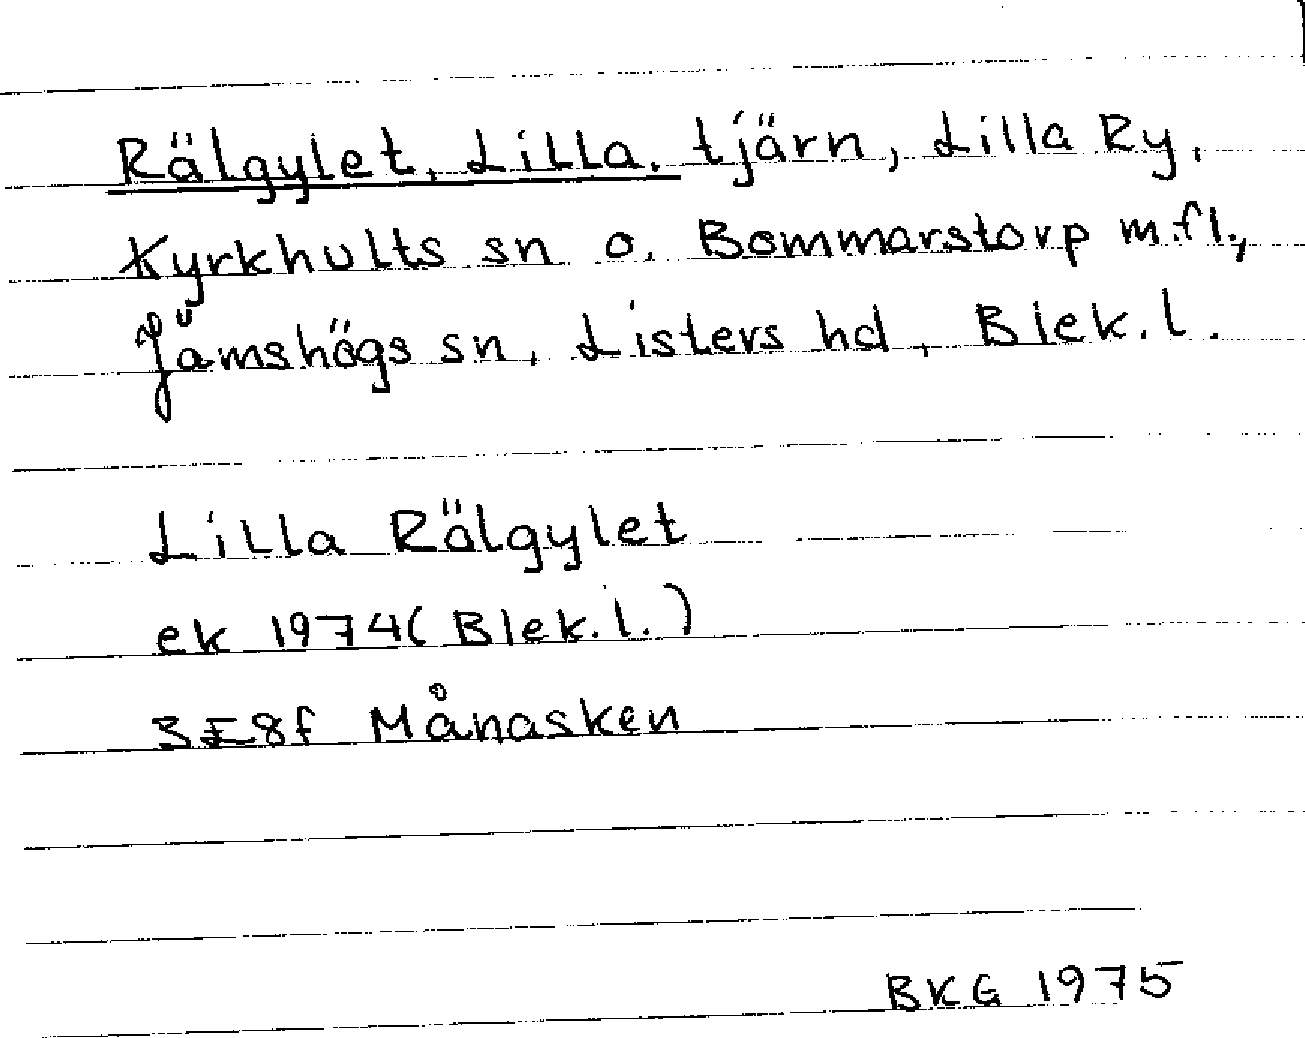 Rälgylet, Lilla. tjärn, Lilla Ry,
Kyrkhults sn o. Bommarstorp m.fl.,
Jämshögs sn, Listers hd, Blek.l.
Lilla Rälgylet
ek 1974 (Blek.l.)
3E8f Månasken
BKG 1975